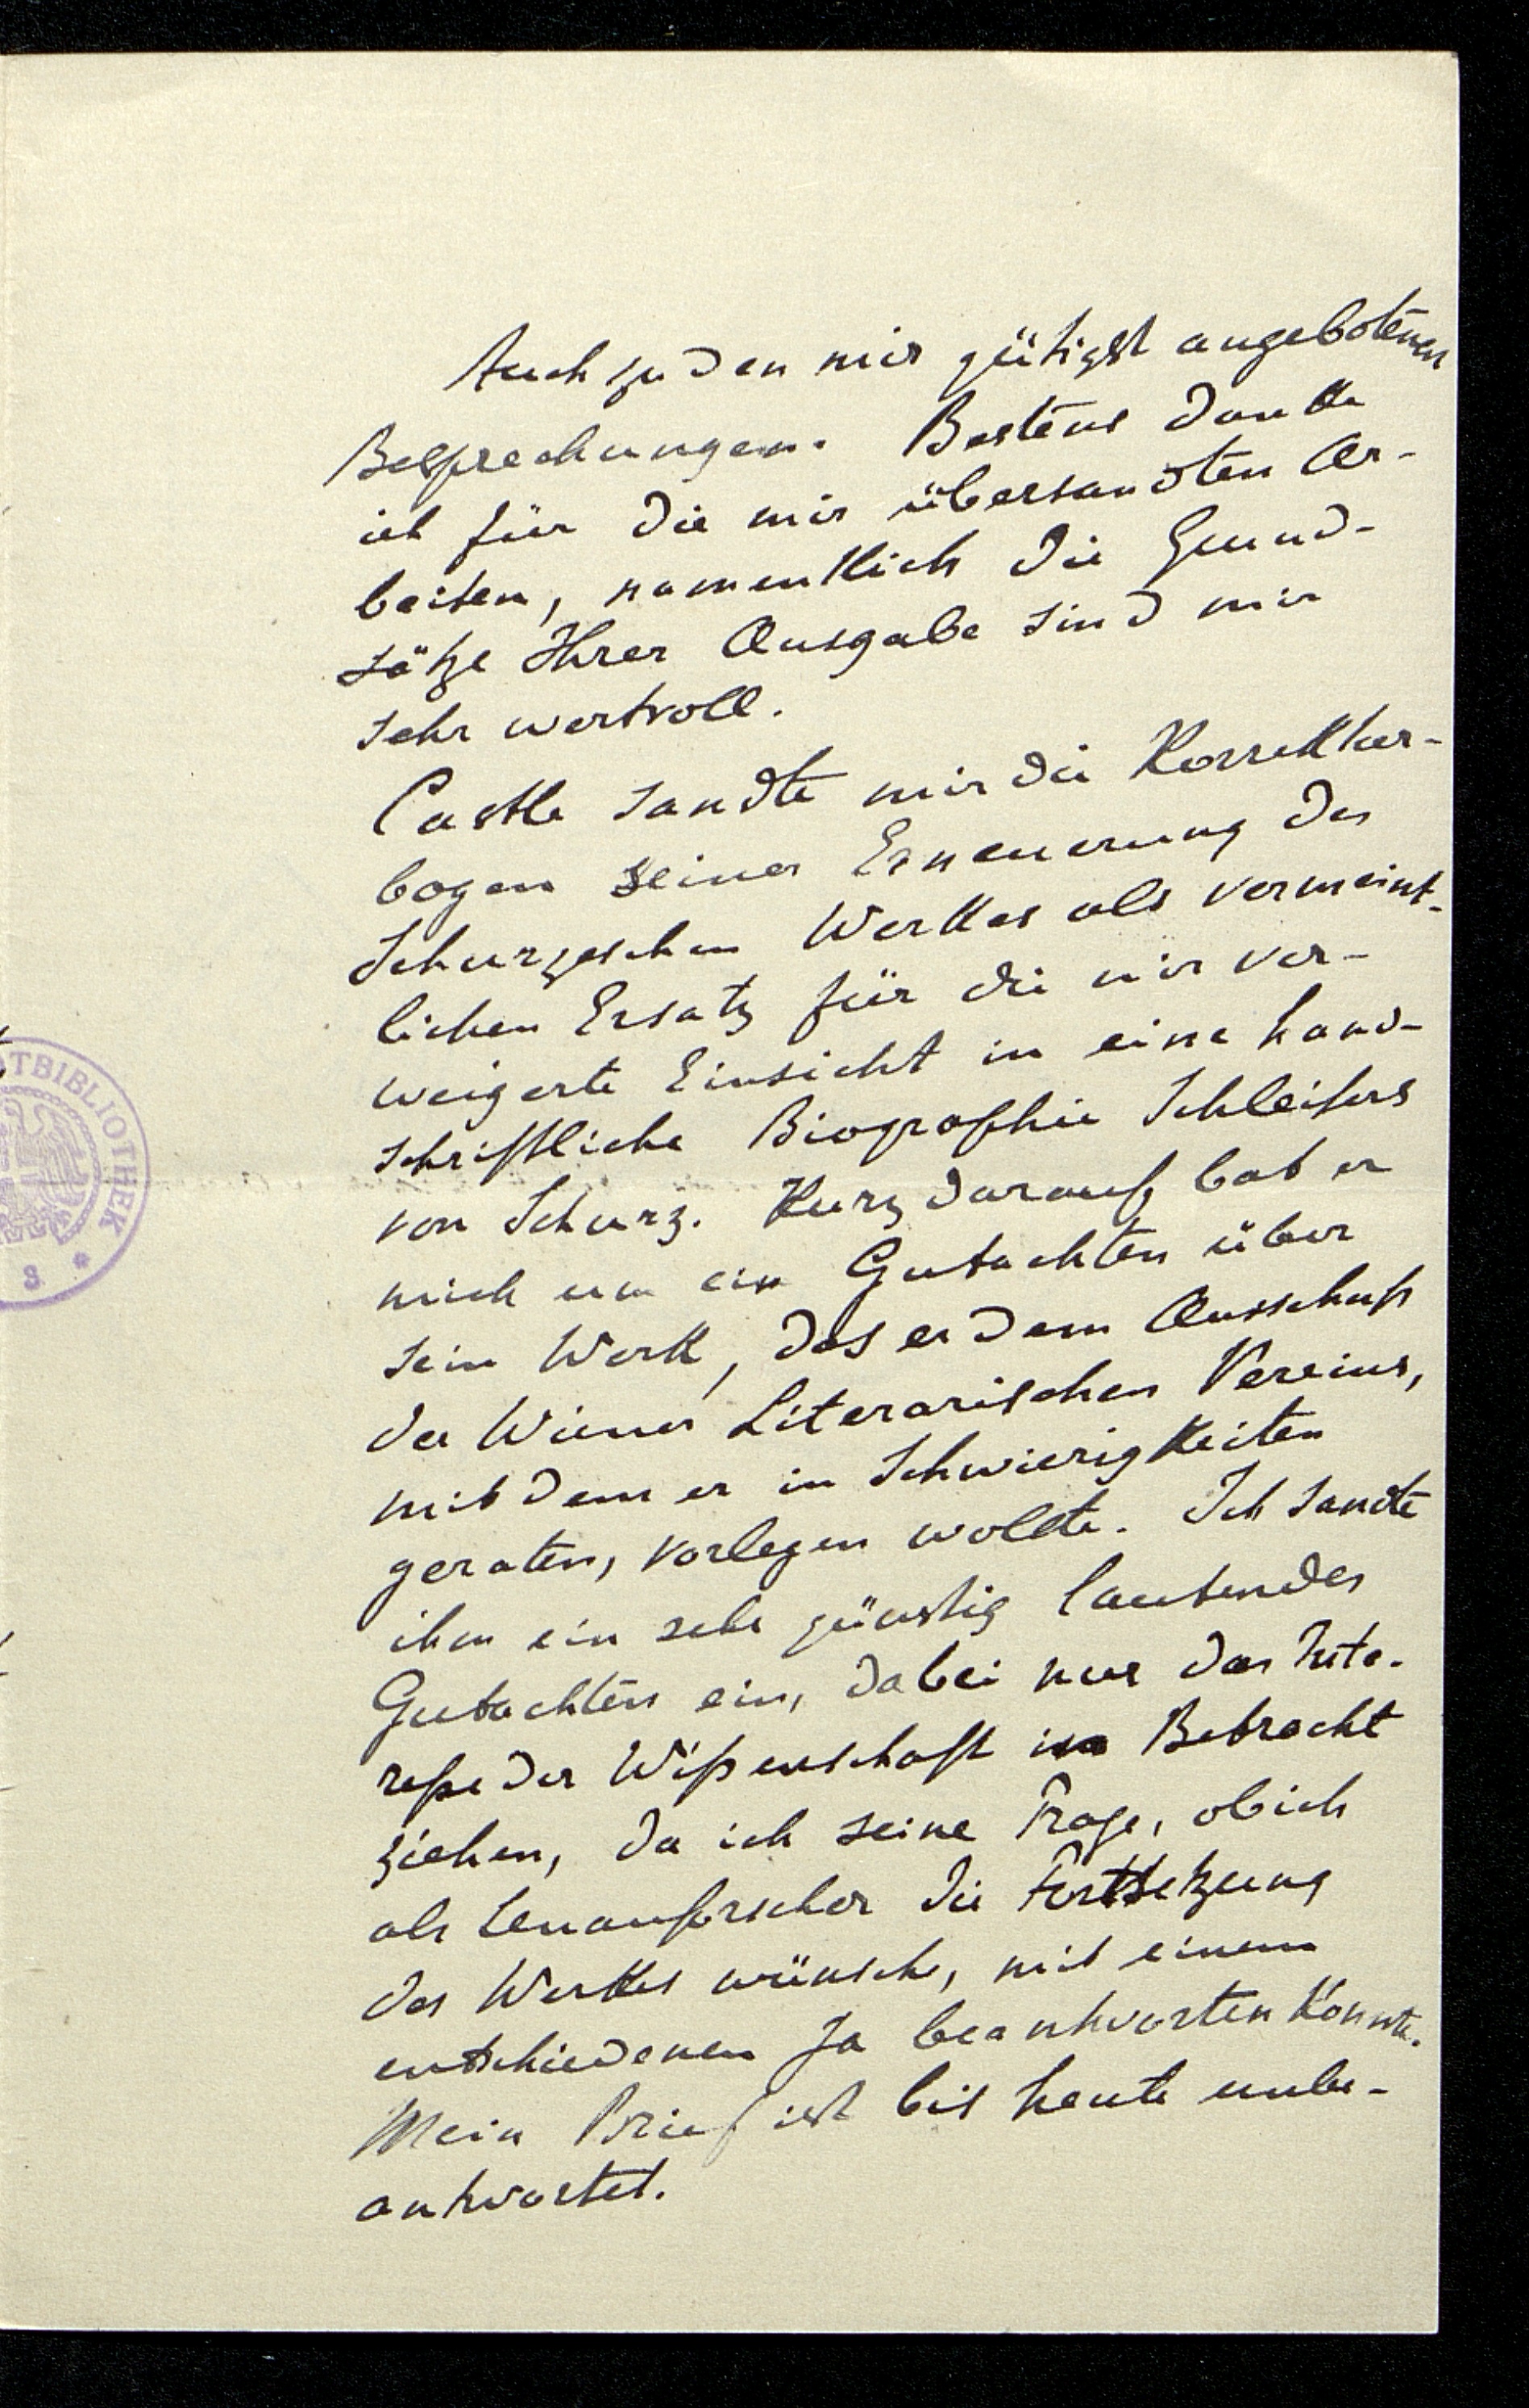 Auch zu den mir gütigst angebotenen
Besprechungen. Bestens danke
ich für die mir übersandten Ar-
beiten, namentlich die Grund-
sätze Ihrer Ausgabe sind mir
sehr wertvoll.
Castle sandte mir die Korrektur-
bogen seiner Erneuerung des
Schurzeschen Werkes als vermeint-
lichen Ersatz für die mir ver-
weigerte Einsicht in eine hand-
schriftliche Biographie Schleifers
von Schurz. Kurz darauf bat er
mich um ein Gutachten über
sein Werk, das er dem Ausschuß
des Wiener Literarischen Vereins,
mit dem er in Schwierigkeiten
geraten, vorlegen wollte. Ich sandte
ihm ein sehr günstig lautendes
Gutachten ein, dabei nur das Inte-
reße der Wißenschaft in Betracht
ziehen, da ich seine Frage, ob ich
als Lenauforscher die Fortsetzung
des Werkes wünsche, mit einem
entschiedenen Ja beantworten konnte.
Mein Brief ist bis heute unbe-
antwortet.
TBIBLIOTHEK
S